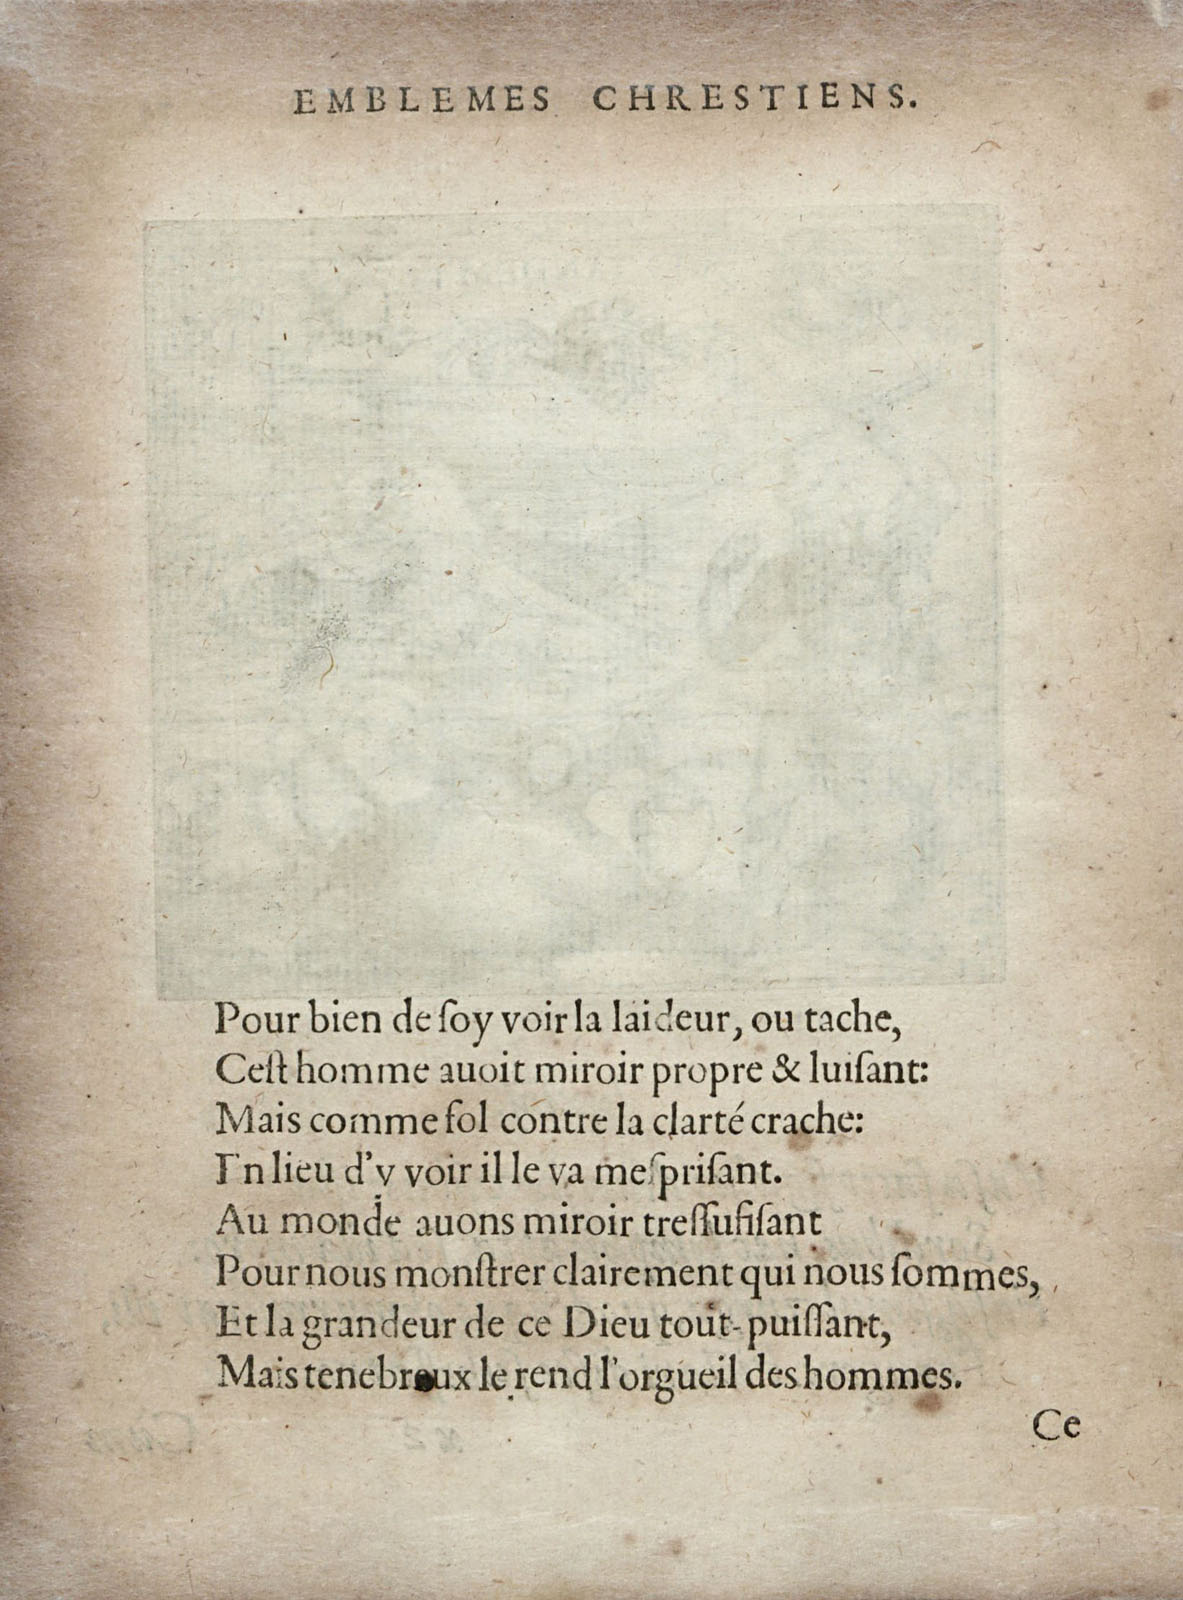 EMBLEMES CHRESTIENS.
Pour bien de ſoy voir la laideur, ou tache,
Ceſt homme auoit miroir propre & luiſant:
Mais comme fol contre la clarté crache:
En lieu d'y voir il le va meſpriſant.
Au monde auons miroir treſſufiſant
Pour nous monſtrer clairement qui nous ſommes,
Et la grandeur de ce Dieu tout-puiſſant,
Mais tenebreux le rend l'orgueil des hommes.
Ce